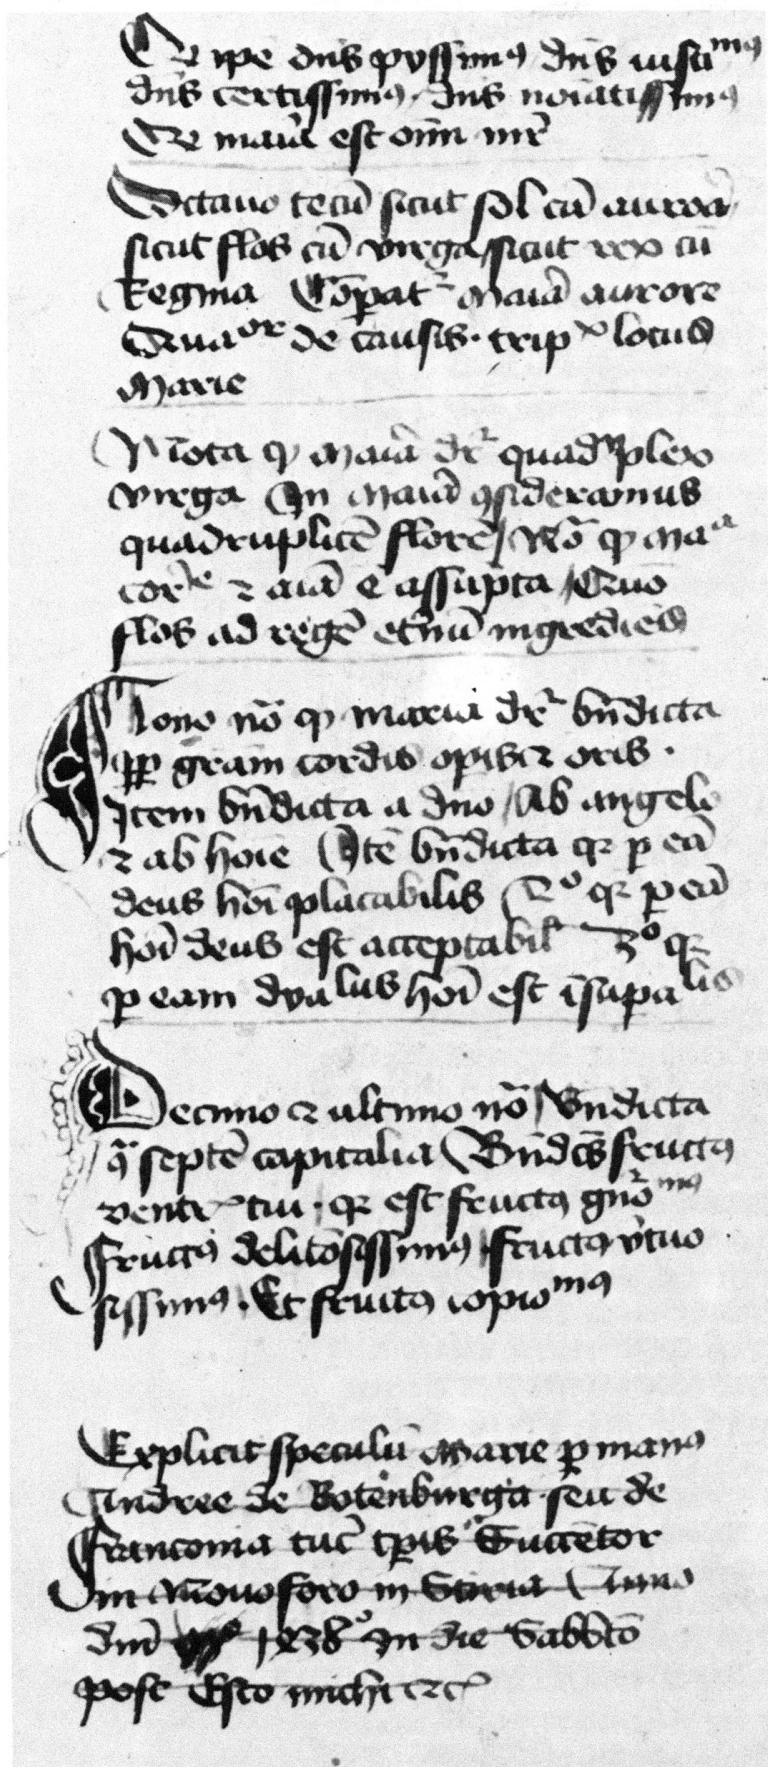 Et ipē dn̄s pyssimꝯ dn̄s iustiᵐꝯ
dn̄s certissimꝯ dn̄s noīatissimꝯ
Et mari̅a est oīm mr̄
Octavo tecū sicut sol cū aurora
sicut flos cū virga sicut rex cū
Regina Cōpatᷣ Mari̅a aurore
Quaᵒʳ de causis · trip͛x locus
Marie
Nota ꝙ Mari̅a drᷣ quadʳplex
virga In Mari̅a ꝯsideramus
quadruplicē florē Nō ꝙ Maᵃ
corᵉ ⁊ aīa ē assūpta Quō
flos ad regē et̄nū ingrediēs
Nono nō ꝙ maria drᷣ bn̄dicta
ꝓpt̄ gr̄am cordis opis ⁊ oris ·
Item bn̄dicta a dn̄o Ab angelo
⁊ ab hoīe Itē bn̄dicta qꝛ ꝑ eā
deus hoī placabilis 2° qꝛ ꝑ eā
hoī deus est acceptabil̄ 3° qꝛ
ꝑ eam dyaˡᵘˢ hoī est īsupaˡⁱˢ
Decimo ⁊ ultimo nō Bn̄dicta
ꝯͣ septē capitalia Bn̄dcs̄ fructꝯ
ventrꝭ tui · qꝛ est fructꝯ gn̄oᵐꝯ
Fructꝯ delitōsissimꝯ fructꝯ v̄tuo
sissimꝯ · Et fructꝯ copioᵐꝯ
Explicit speculū Marie ꝑ manꝯ
Andree de Rotenburga seu de
Franconia tūc tꝑis Succētor
in Novoforo in Stiria Anno
dn̄i 1438° In die Sabbto
post Esto michi ⁊c̄